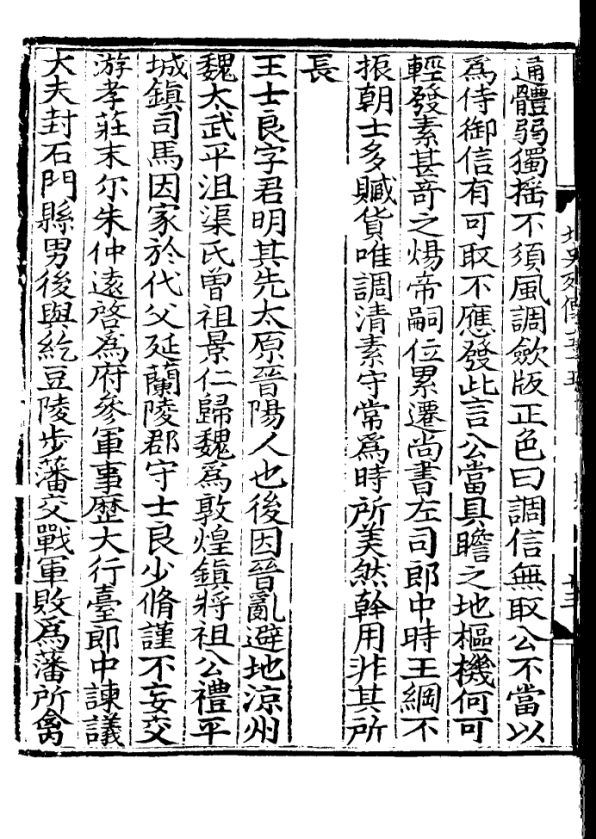 通體弱獨揺不須風調斂版正色曰調信無取公不當以
爲侍御信有可取不應發此言公當具瞻之地樞機何可
輕發素甚竒之煬帝嗣位累遷尚書左司郎中時王綱不
振朝士多贓貨唯調清素守常爲時所美然幹用非其所
長
王士良字君明其先太原晉陽人也後因晉亂避地涼州
魏太武平沮渠氏曾祖景仁歸魏爲敦煌鎮將祖公禮平
城鎮司馬因家於代父延蘭陵郡守士良少脩謹不妄交
游孝莊末尓朱仲遠啓爲府參軍事歷大行臺郎中諫議
大夫封石門縣男後與紇豆陵步藩交戰軍敗爲藩所禽